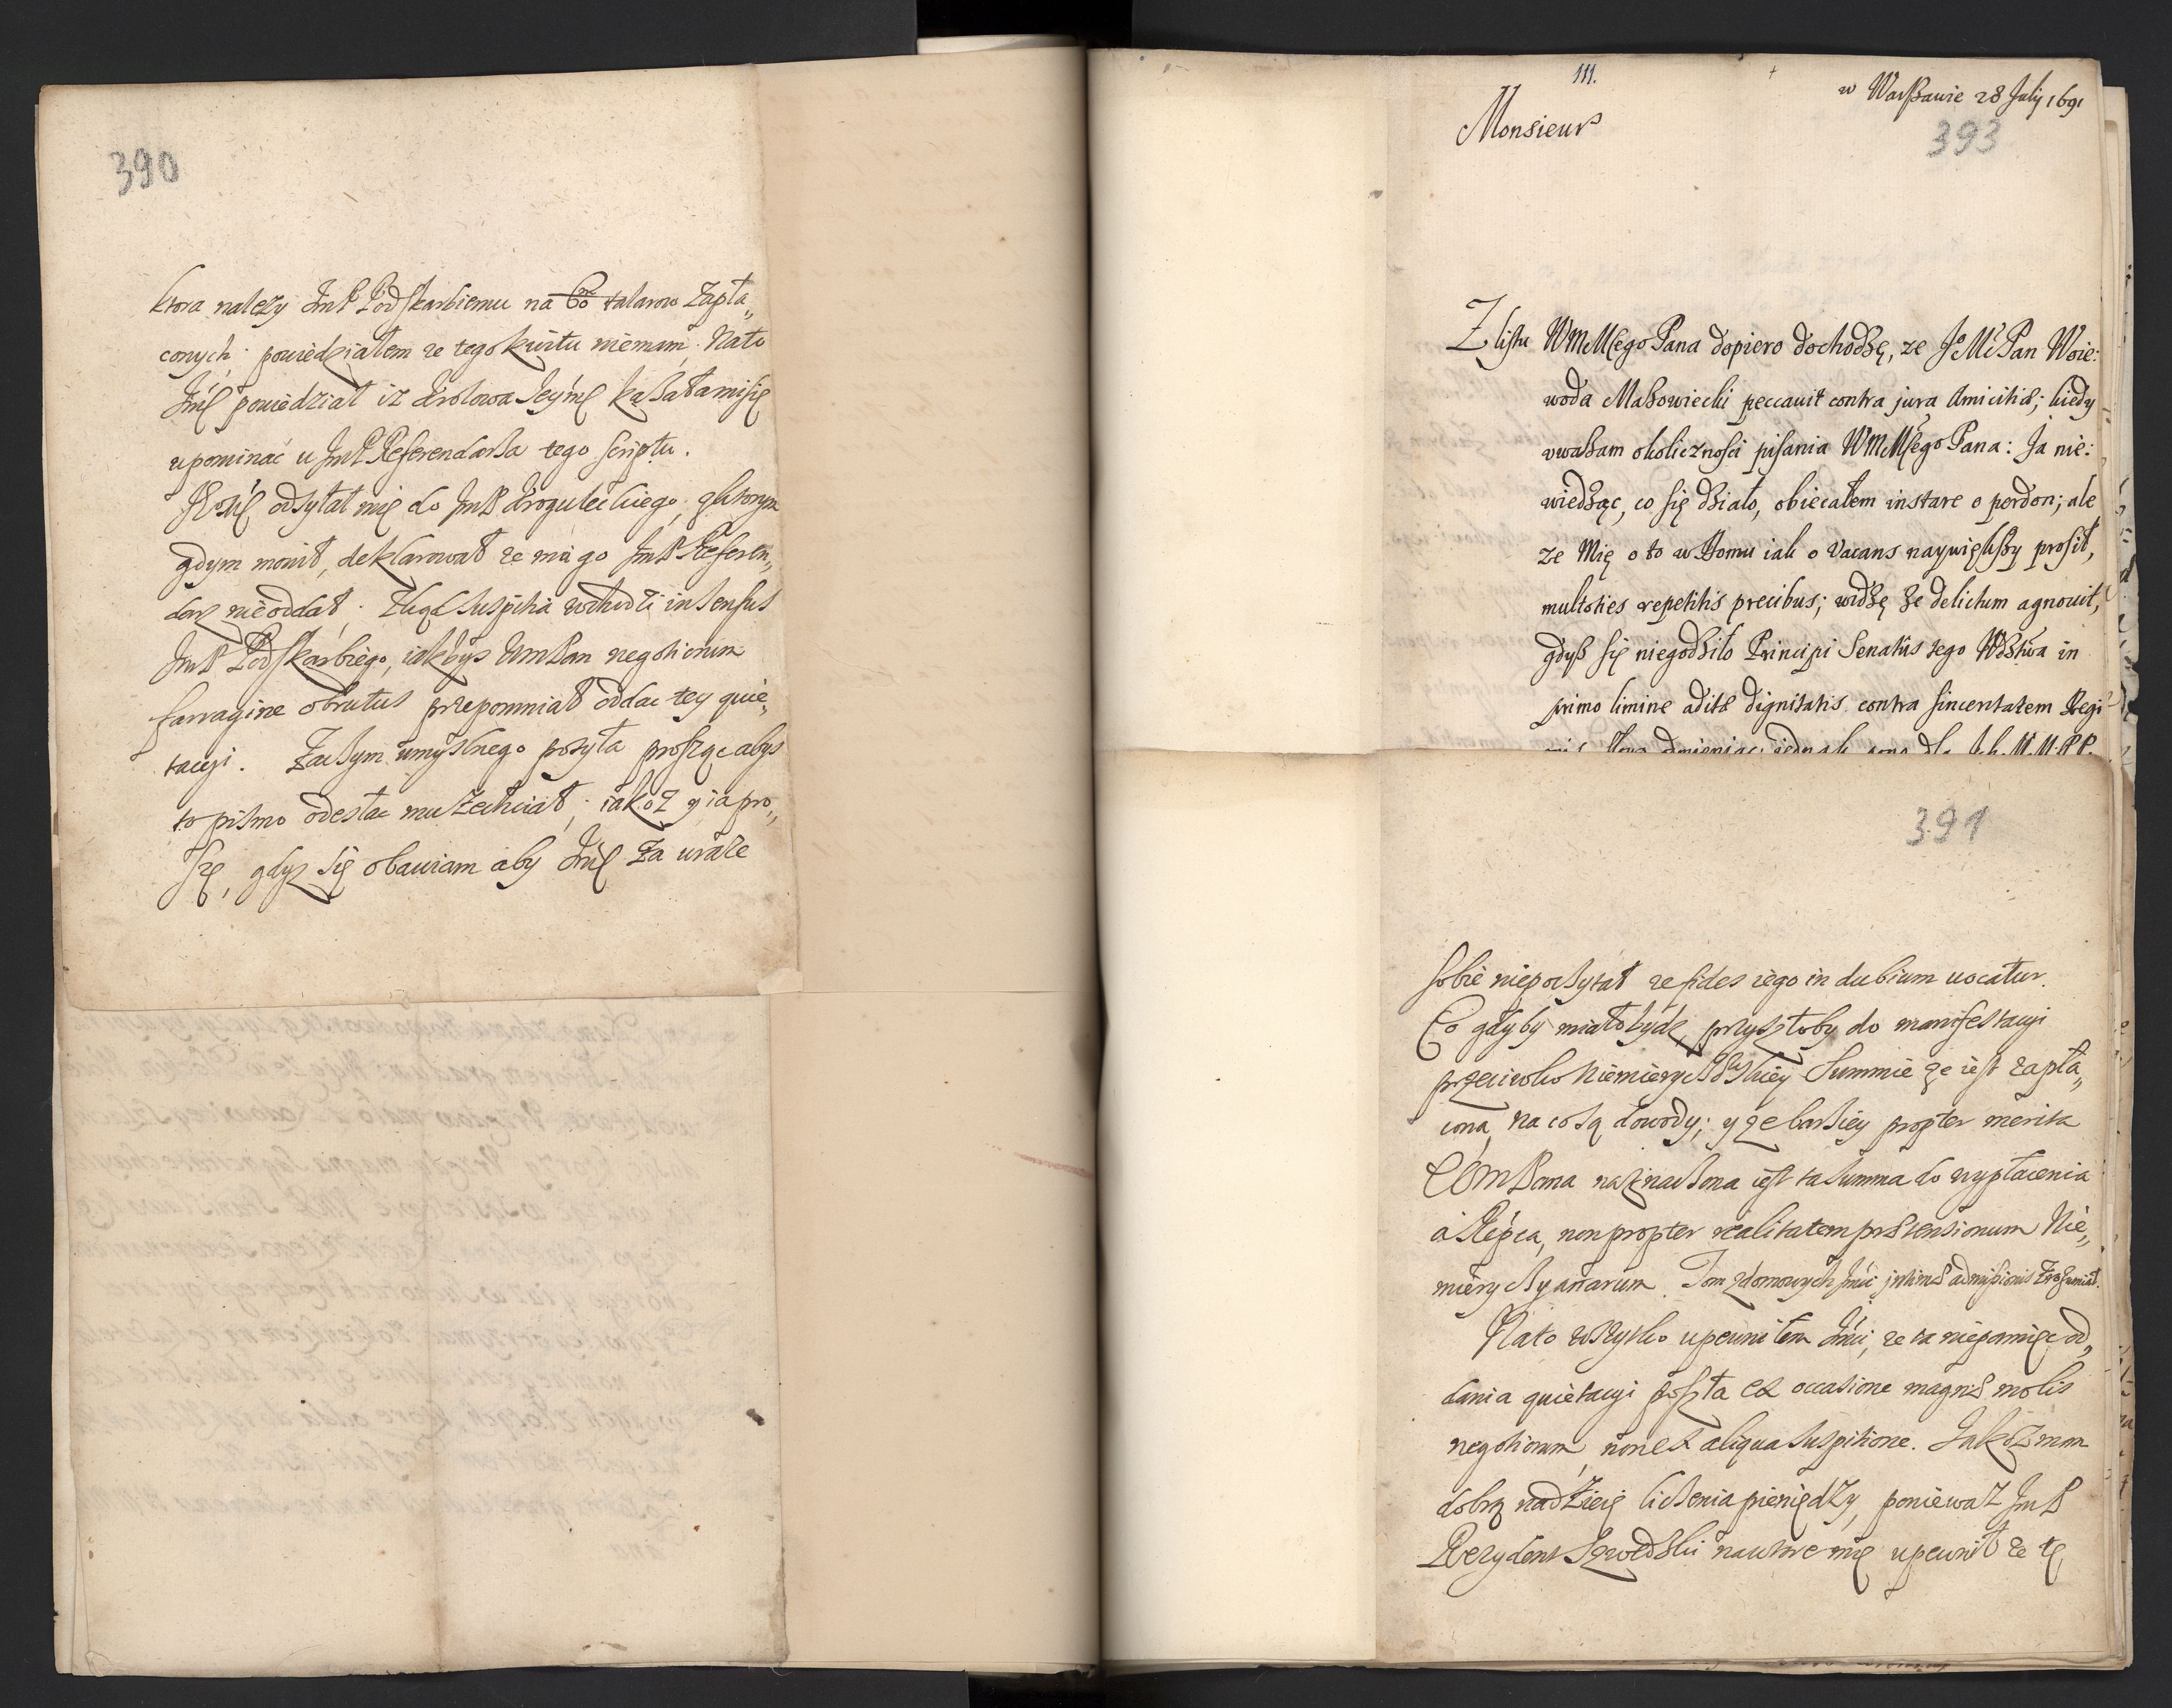 390
ktora nalezy JmP Podskarbiemu na 60 talarow zapła„
conych: powiedziałem ze tego kwitu niemam. Nato
Jmć powiedział iz Krolowa Jeymć kazała mi się
upominać u JmP Referendarza tego scriptu.
odsyłał mię do JmP Drogułeckiego, z ktorym
gdym mowił, deklarował ze mu go JmP Referen„
darz nieoddał; zkąd suspitia wchodzi in sensus
JmP Podskarbiego, iakbys WmPan negotiorum
farragine obrutus przepomniał oddac tey quie„
tacyi. Zaczym umyslnego posyła prosząc abys
to pismo odesłac mu zechciał; iakoz y ia pro„
szę, gdyz się obawiam aby Jmć za uraze
111.
w Warszawie 28 Julij 1691
393
Monsieur
Z listu WMMsego Pana dopiero dochodzę, ze JoMć Pan Woie:
woda Mazowiecki peccavit contra jura Amicitiæ; kiedy
uwazam okoliczności pisania WMMsego Pana: Ja nie:
wiedząc, co się działo, obiecałem instare o perdon; ale
ze Mię o to w Domu iak o Vacans naywiększy prosił,
multoties repetitis precibus; widzę ze delictum agnovit,
gdyz się niegodziło Principi Senatus tego Wdztwa in
primo limine aditæ dignitatis contra sinceritatem Regi
391
sobie niepoczytał ze fides iego in dubium vocatur.
Co gdyby miało bydz, przyszłoby do manifestacyi
przeciwko Niemieryczowskiey Summie ze iest zapła„
cona, na co są dowody; y ze barziey propter merita
WmPana naznaczona iest ta summa do wypłacenia
á Rępca, non propter realitatem prætensionum Nie„
mieryczyanarum. Tom z domowych Jmci intimæ admissionis zrozumiał.
Nato wszytko upewniłem Jmci, ze ta niepamięc od„
dania quietacyi poszła ex occasione magnæ molis
negotiorum, non ex aliqua suspitione. Jakoz mam
dobrą nadzieię liczenia pieniędzy, poniewaz JmP
Rezydent Szwedzki nawtore mię upewnił ze tę